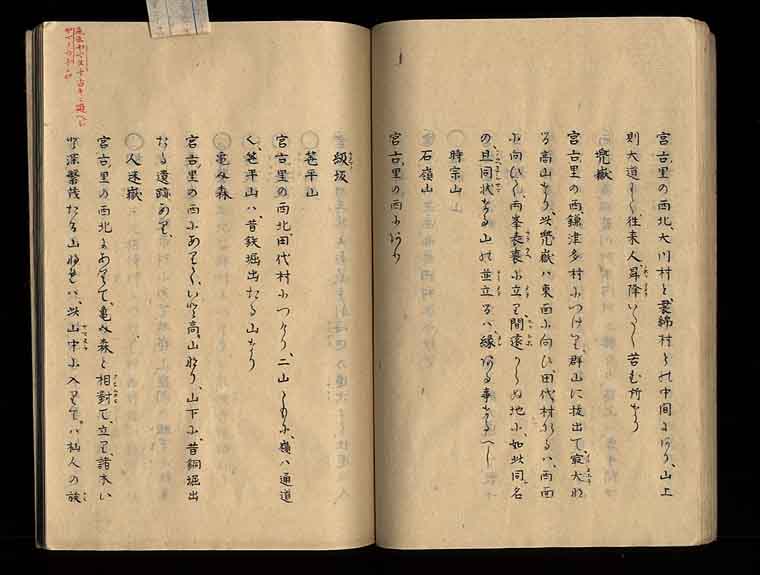 宮古里の西北、大川村と、蓑綿村との中間にあり、山上
則大道にて、往来人、昇降いたく苦む所なり
兜嶽
宮古里の西、鎌津多村につけり、群山に抜出て、最大な
る高山なり、此兜嶽ハ東西に向ひ、田代村なるハ、両西
に向ひて、両峯表裏に立り、間遠からぬ地に、如此同名
の、且同状なる山の並立るハ、縁ある事なるへし
時宗山
石嶺山
宮古里の西にあり
級坂
笹平山
宮古里の西北、田代村につけり、二山ともに、嶺ハ通道
く、笹平山ハ、昔鉄堀出たる山なり
亀か森
宮古里の西にありて、いと高山なり、山下に、昔銅堀出
たる遺跡あり
人迷嶽
宮古里の西北にありて、亀か森と相對て、立り、諸木い
と深繁茂たる山なれハ、此山中に入りてハ仙人の族